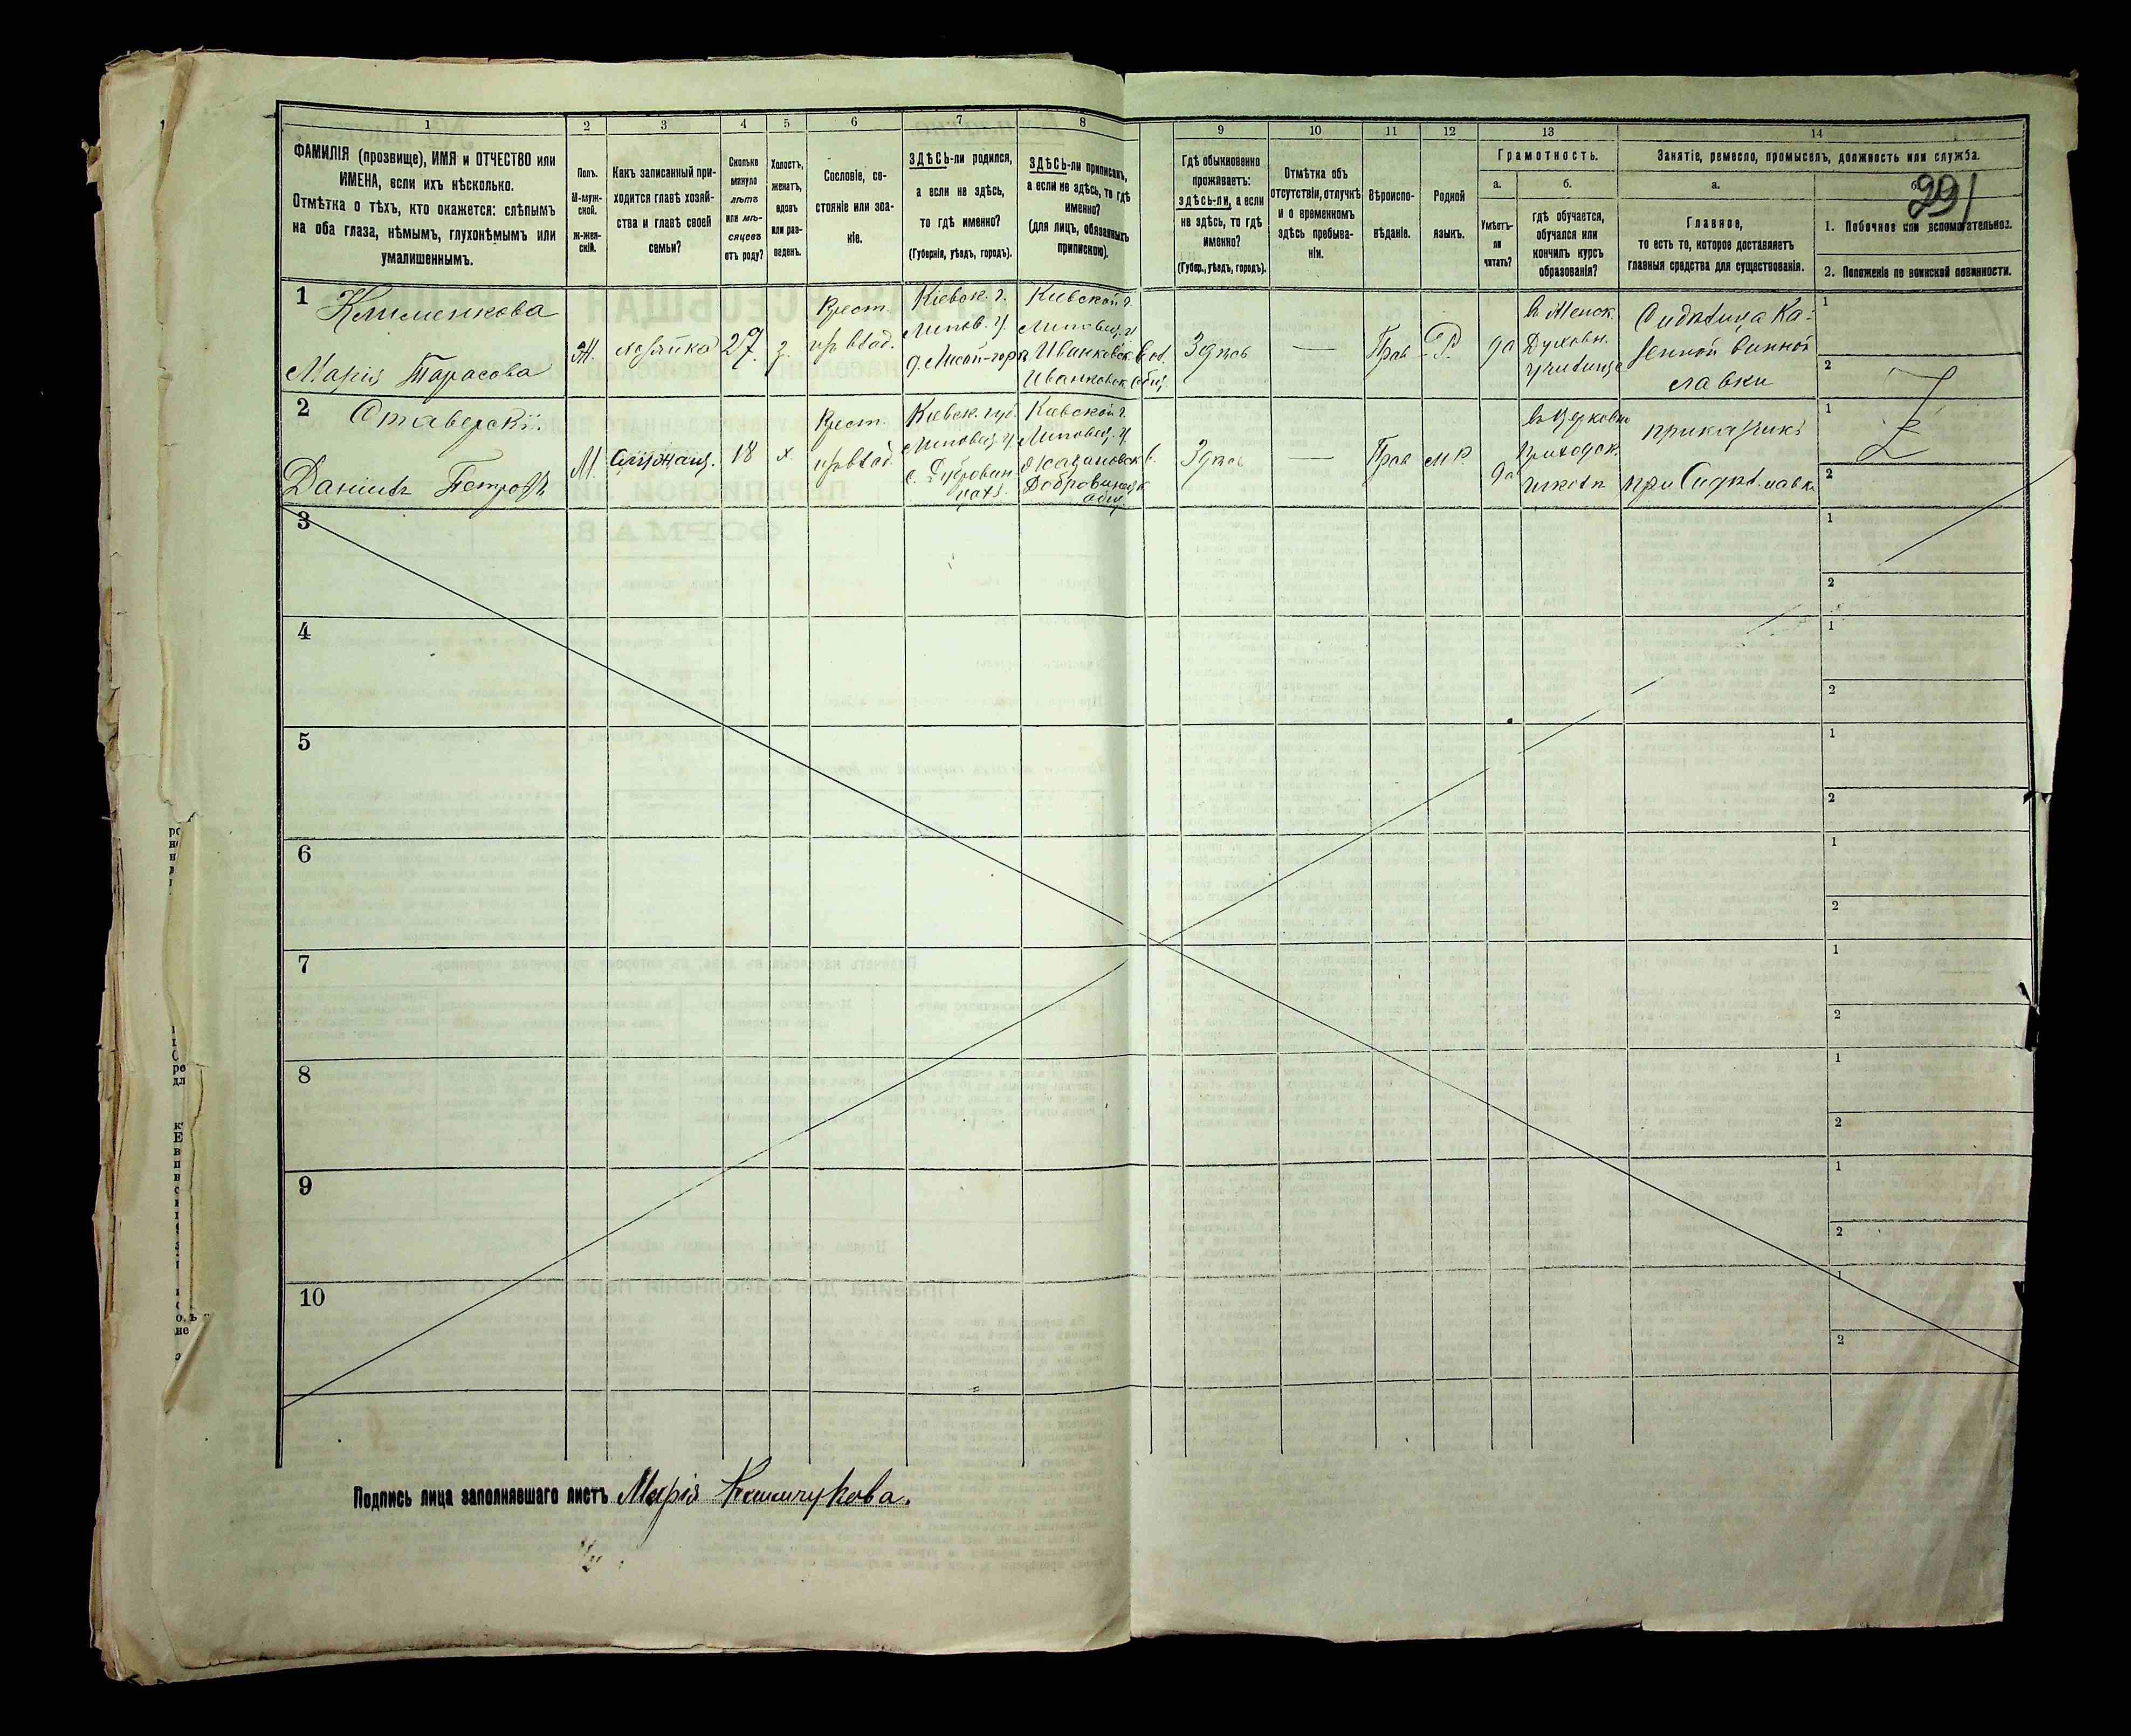 1
2
3
4
5
6
7
8
9
10
11
12
13
14
ФАМИЛІЯ (прозвище), ИМЯ и ОТЧЕСТВО или
ИМЕНА, если ихъ нѣсколько.
Отмѣтка о тѣхъ, кто окажется: слѣпымъ
на оба глаза, нѣмымъ, глухонѣмымъ или
умалишеннымъ.
Полъ.
М-муж-
ской.
Ж-жен-
скій.
Какъ записанный при-
ходится главѣ хозяй-
ства и главѣ своей
семьи?
Сколько
минуло
лѣтъ
или мѣ-
сяцевъ
отъ роду?
Холостъ,
женатъ,
вдовъ
или раз-
веденъ.
Сословіе, со-
стояніе или зва-
ніе.
ЗДѢСЬ-ли родился,
а если не здѣсь,
то гдѣ именно?
(Губернія, уѣздъ, городъ).
ЗДѢСЬ-ли приписанъ,
а если не здѣсь, то гдѣ
именно?
(для лицъ, обязанныхъ
припискою).
Гдѣ обыкновенно
проживаетъ:
здѣсь-ли, а если
не здѣсь, то гдѣ
именно?
(Губер., уѣздъ, городъ).
Отмѣтка объ
отсутствіи, отлучкѣ
и о временномъ
здѣсь пребыва-
ніи.
Вѣроиспо-
вѣданіе.
Родной
языкъ.
Грамотность.
а.
Умѣетъ-
ли
читать?
б.
гдѣ обучается,
обучался или
кончилъ курсъ
образованія?
Занятіе, ремесло, промыселъ, должность или служба.
а.
Главное,
то есть то, которое доставляетъ
главныя средства для существованія.
б.
291
1. Побочное или вспомогательное.
2. Положеніе по воинской повинности.
1
Клименкова
Марія Тарасова
Ж.
хозяйка
27
з.
Крест.
Кіевск. г.
Липов. у.
д. Лисой-гор
Кіевской г.
Липовец. у
Иванковск. вол.
Иванковск. общ.
Здѣсь
—
Прав
Р.
да
Духовн.
училище
Сидѣлица Ка-
зенной винной
лавки
1
2
2
Ставерскій.
Даніилъ Петровъ
М.
18
х
Крест.
Кіевск. губ.
Липовец. у
Кіевской г.
Липовец. у
Здѣсь
—
Прав
М.Р.
да
въ церковн
приходск.
школѣ
приказчикъ
при Сидѣл. лавкѣ
1
2
3
1
2
4
1
2
5
1
2
6
1
2
7
1
2
8
1
2
9
1
2
10
1
2
Подпись лица заполнявшаго листъ Марія